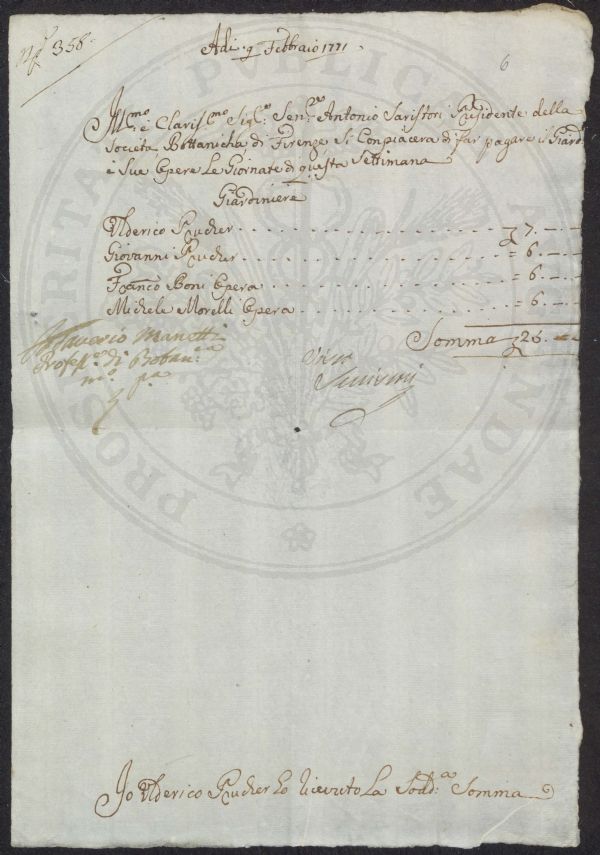 N.º 358.
6
Adi 9 Febbraio 1771.
Ill.mo e Clariss.mo Sig.re Sen.re Antonio Saristori Presidente della
Societa Bottanicha di Firenze Si Conpiacera di far pagare i Giard
e Sue Opere Le Giornate di questa Settimana
Giardiniere
Ulderico Prucher 7. —
Giovanni Prucher = 6. —
Franco Boni Opera = 6. —
Michele Morelli Opera = 6. —
Somma 25. —
Saverio Manetti
Profess.re di Botan.ca
m.o p.a
Visto
Io Ulderico Prucher ho ricevuto La Sodd.a Somma
PROSPERITATI PUBLICAE AUGENDAE